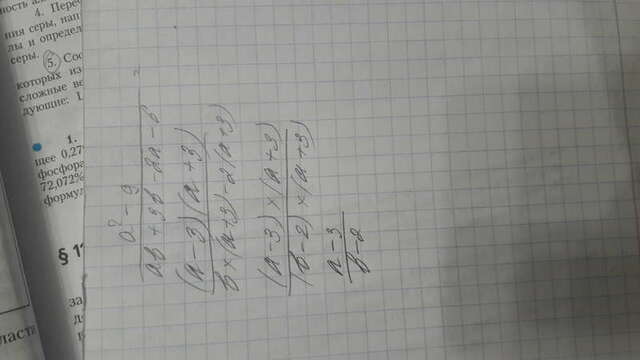 ность ал
4. Перес
ния серы, нап
лы и определ
серы.
5. Сос
которых из
сложные ве
дующие:
1.
щее 0,27
фосфора
72,072%
формул
§ 1
за
ласти
a² - 9
ab + 3b - 2a - 6
(a - 3)(a + 3)
b × (a + 3) - 2(a + 3)
(a - 3) × (a + 3)
(b - 2) × (a + 3)
a - 3
b - 2